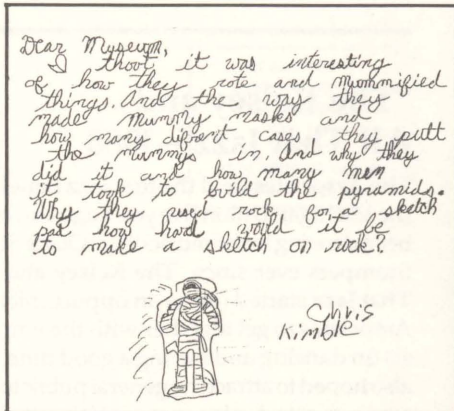 Dear Museum,
I thoot it was interesting
of how they rote and mommified
things. And the way they
made mummy masks and
how many difrent cases they putt
the mummys in. And why they
did it and how many men
it took to build the pyramids.
Why they used rock for a sketch
pad how hard would it be
to make a sketch on rock?
Chris
Kimble